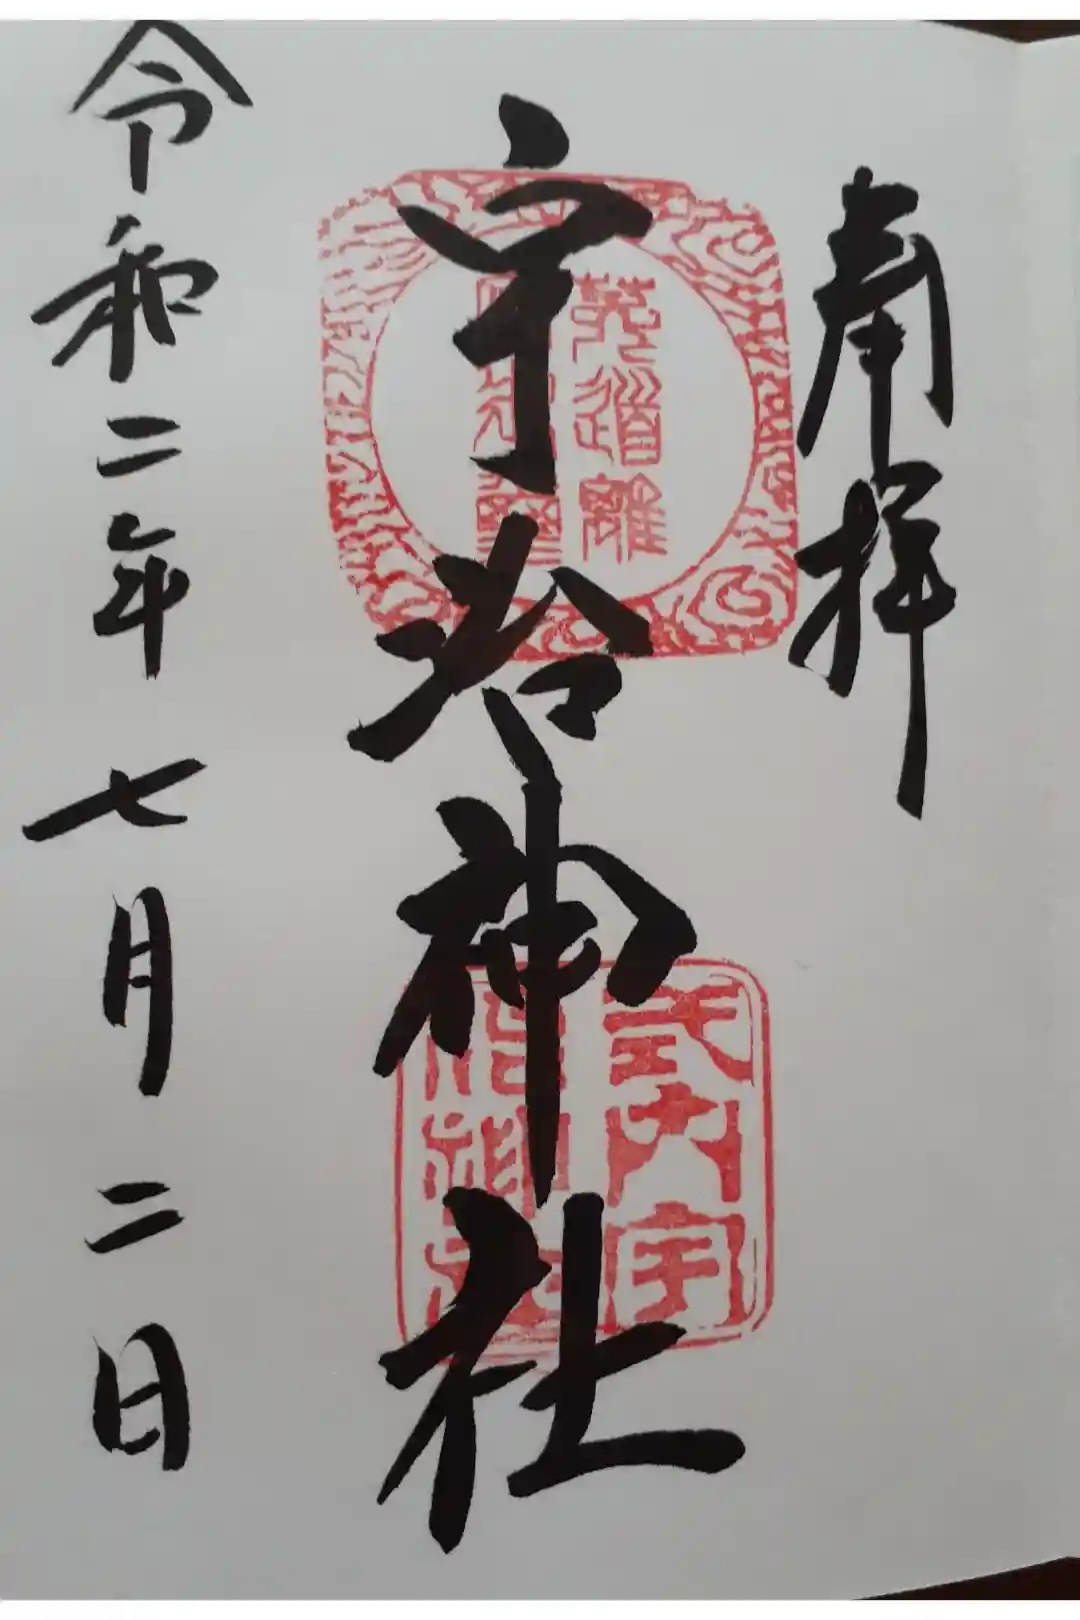 奉拝
宇治神社
令和二年七月二日
菟道離
式内宇
治神社